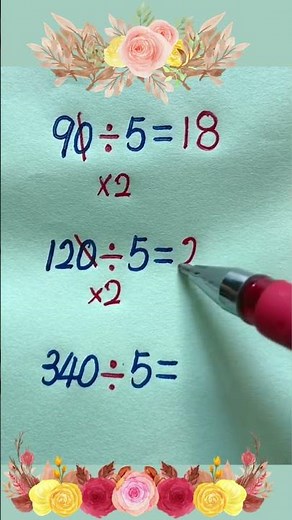 90÷5=18
×2
120÷5=2
×2
340÷5=